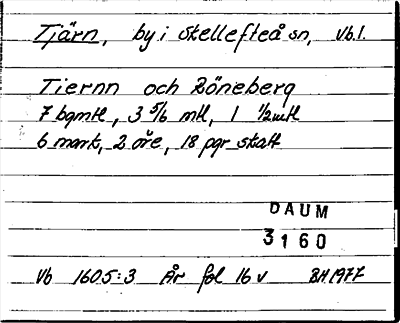 Tjärn, by i Skellefteå sn, Vb.l.
Tiernn och Böneberg
7 bgmtl, 3 5/6 mtl, 1 1/2mtl
6 mark, 2 öre, 18 pgr skatt
DAUM
3160
Vb 1605:3 År fol 16 v BH 1977